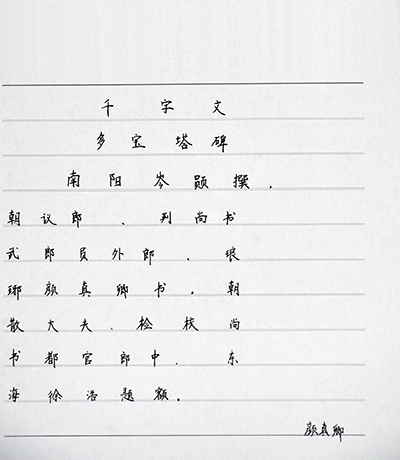 千字文
多宝塔碑
南阳岑撰.
朝议郎、判尚书
武郎员外郎、琅
琊颜真卿书。朝
散大夫、检校尚
书都官郎中、东
海徐浩题额。
颜真卿